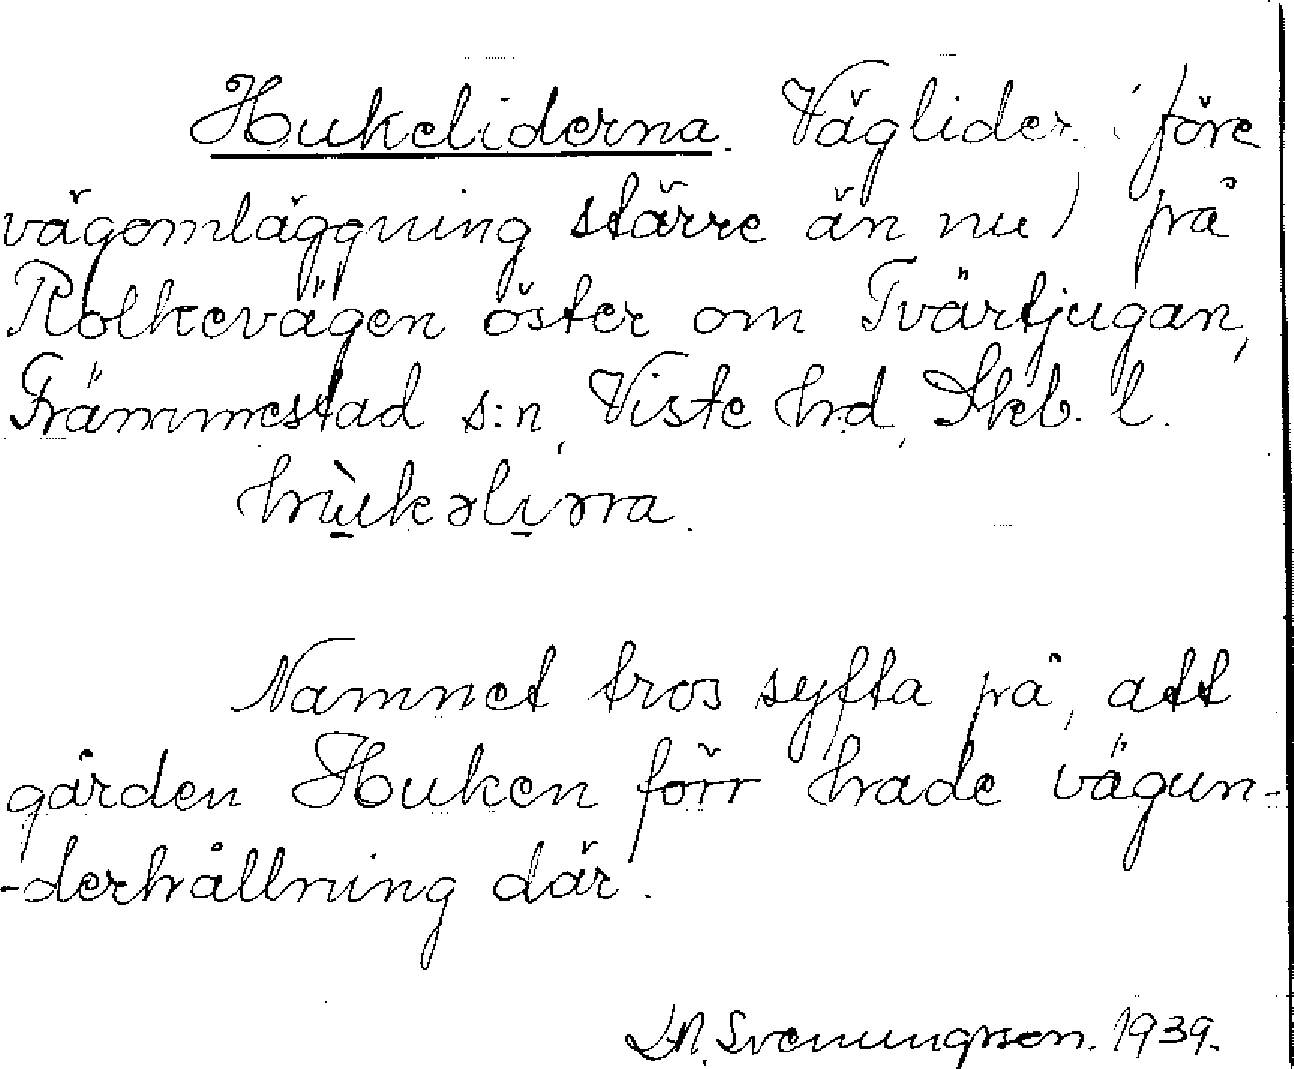 Hukeliderna. Väglider (före
vägomläggning större än nu) på
Rölkevägen öster om Tvärtjugan,
Främmestad s:n, Viste hd, Skb. l.
hùkəlıəra.

Namnet tros syfta på, att
gården Huken förr hade vägun-
-derhållning där.

Svenungsson. 1939.